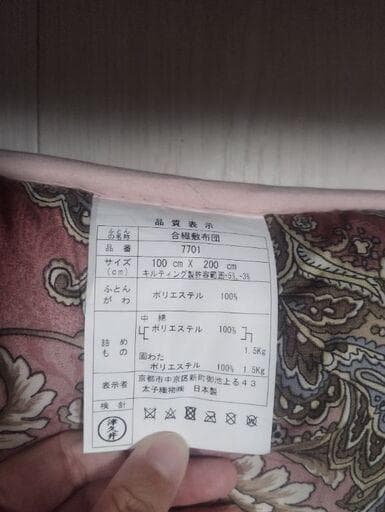 品質表示
ふとんの名称 合繊敷布団
品番 7701
サイズ(cm) 100 cm X 200 cm
キルティング製許容範囲-5%,-3%
ふとんがわ ポリエステル 100%
詰めもの 中綿
ポリエステル 100%
1.5Kg
固わた
ポリエステル 100% 1.5Kg
表示者 京都市中京区新町御池上る43
太子種物㈱ 日本製
検針
津久井